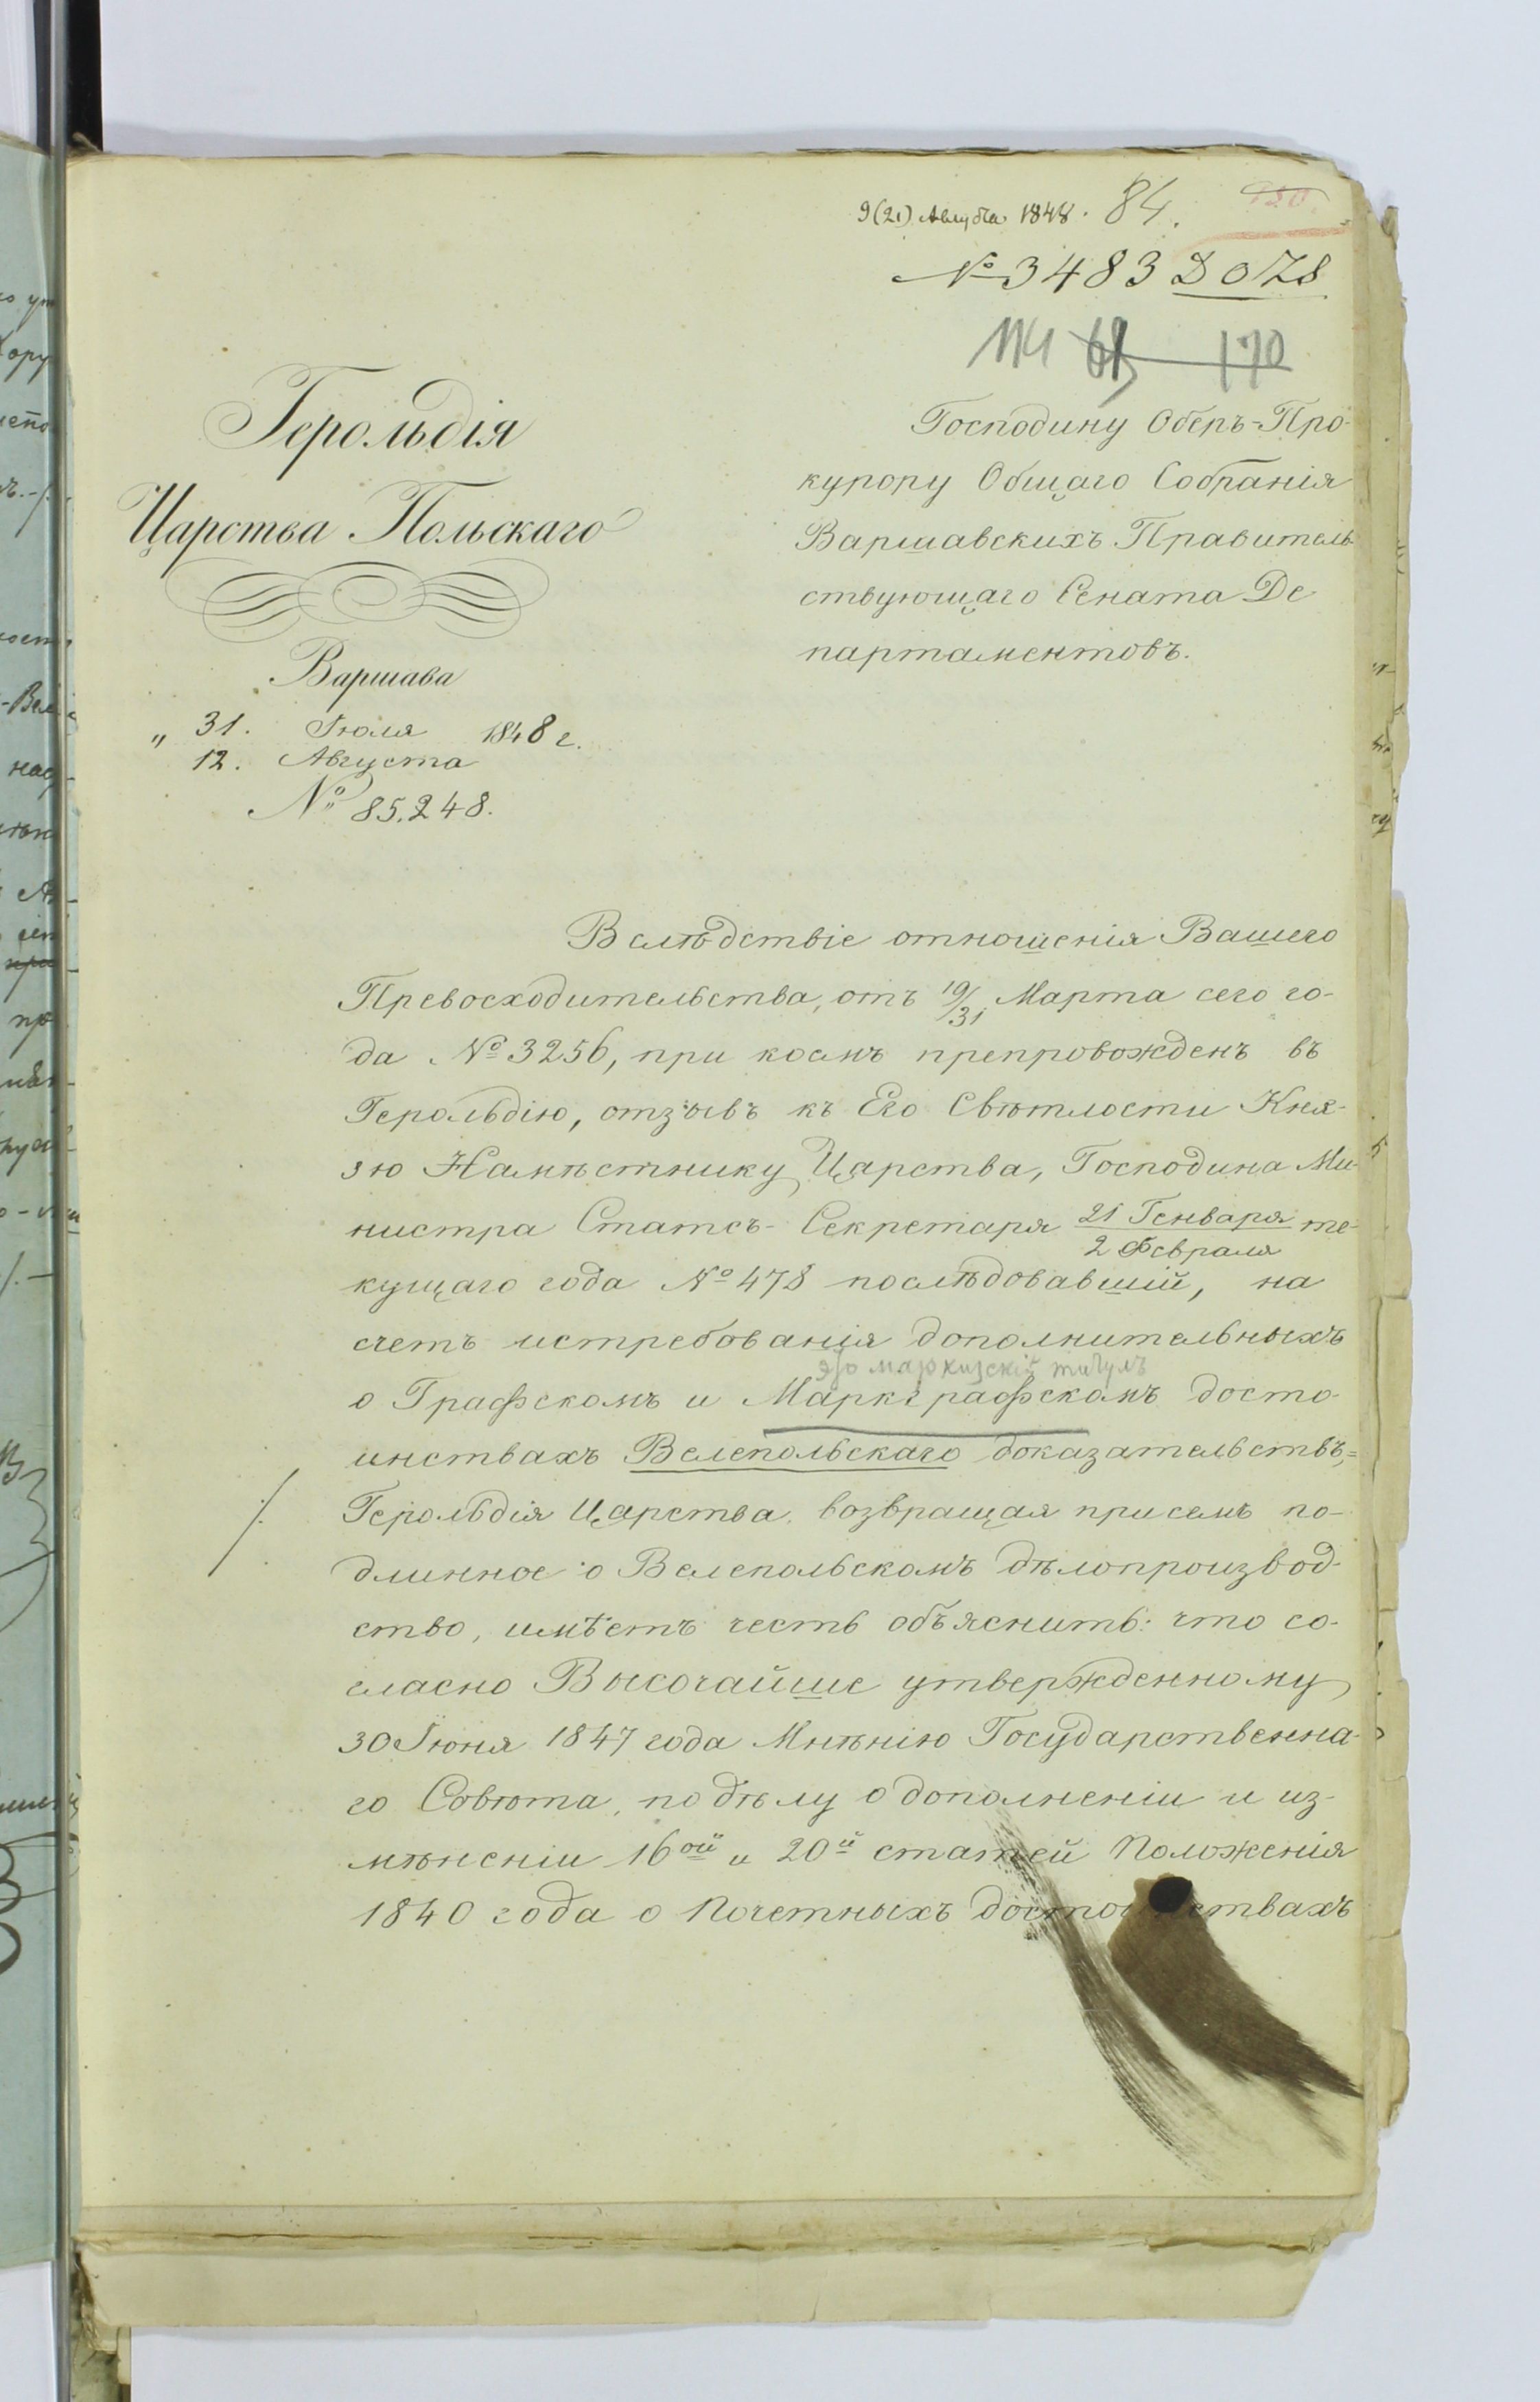 9 (21) Августа 1848. 84.
№ 3483 D 078
114 170
Герольдія
Царства Польскаго
Варшава
„ 31. Іюля 1848 г.
12. Августа
№ 85.248.
Господину Оберъ-Про-
курору Общаго Собранія
Варшавскихъ Правитель-
ствующаго Сената Де
партаментовъ.
Вслѣдствіе отношенія Вашего
Превосходительства, отъ 19/31 Марта сего го-
да № 3256, при коемъ препровожденъ въ
Герольдію, отзывъ къ Его Свѣтлости Кня-
зю Намѣстнику Царства, Господина Ми-
нистра Статсъ-Секретаря 21 Генваря те-
2 Февраля
кущаго года № 478 послѣдовавшій, на
счетъ истребованія дополнительныхъ
маркизскій титулъ
о Графскомъ и Маркграфскомъ досто-
инствахъ Велепольскаго доказательствъ,=
Герольдія Царства, возвращая присемъ по-
длинное о Велепольскомъ дѣлопроизвод-
ство, имѣетъ честь объяснить: что со-
гласно Высочайше утвержденному
30 Іюня 1847 года Мнѣнію Государственна-
го Совѣта, по дѣлу о дополненіи и из-
мѣненіи 16ой и 20й статей Положенія
1840 года о Почетныхъ достоинствахъ